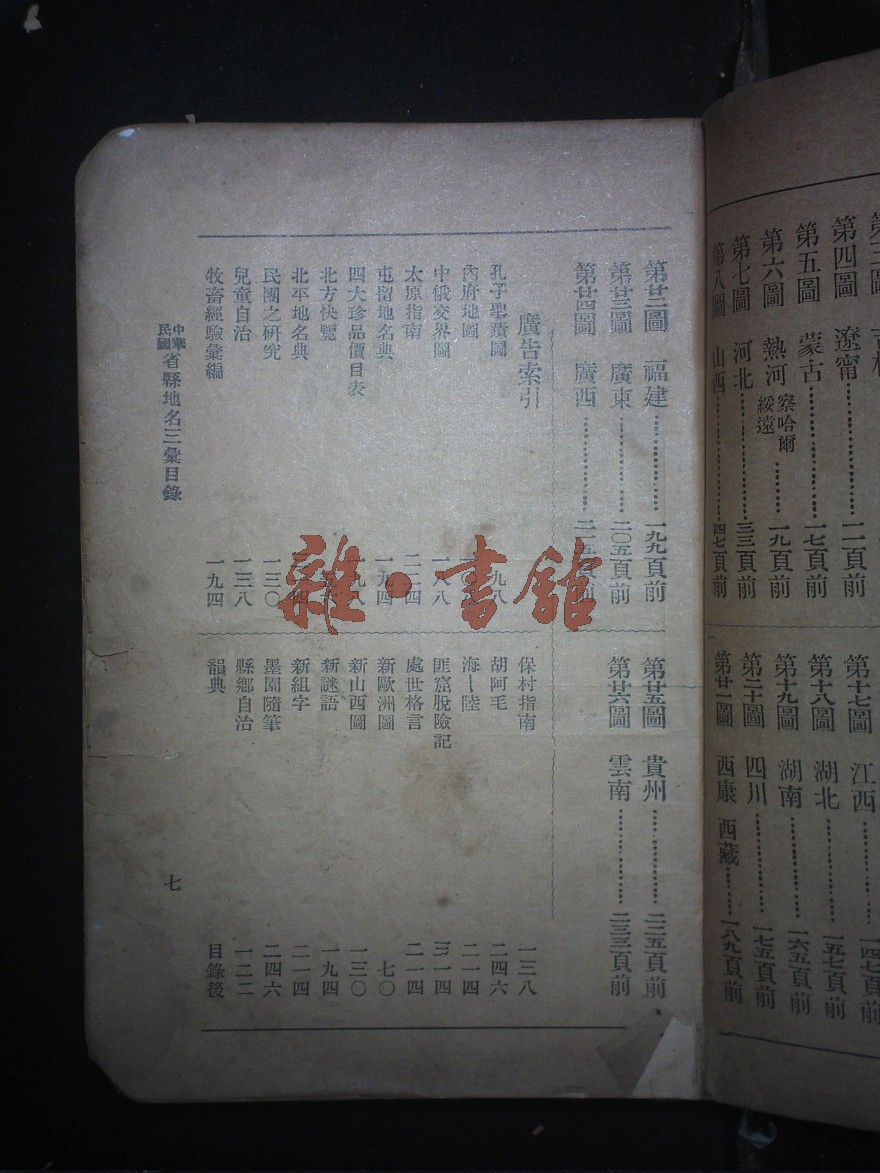 第四圖 遼甯 二頁前
第五圖 蒙古 一七頁前
第六圖 熱河 察哈爾 綏遠 一九頁前
第七圖 河北 三三頁前
第八圖 山西 四七頁前
第十七圖 江西 一四七頁前
第十八圖 湖北 一五七頁前
第十九圖 湖南 一六五頁前
第二十圖 四川 一七五頁前
第廿一圖 西康 西藏 一八九頁前
第廿二圖 福建 一九九頁前
第廿三圖 廣東 二〇五頁前
第廿四圖 廣西 二一五頁前
第廿五圖 貴州 二二五頁前
第廿六圖 雲南 二三三頁前
廣告索引
孔子聖蹟圖
內府地圖
中俄交界圖 一八八
太原指南 二一四
屯留地名典 一九四
四大珍品價目表
北方快覽
北平地名典
民團之研究 一三〇
兒童自治 一三八
牧畜經驗彙編 一九四
保村指南 一三八
胡阿毛 二四六
海—陸 二一四
匪窟脫險記 三一四
處世格言 二一四
新歐洲圖 七〇
新山西圖 一三〇
新謎語 一九四
新組字 二一四
墨園隨筆 二四六
縣鄉自治 一二二
韻典 目錄後
中華民國省縣地名三彙目錄
七
雜·書館